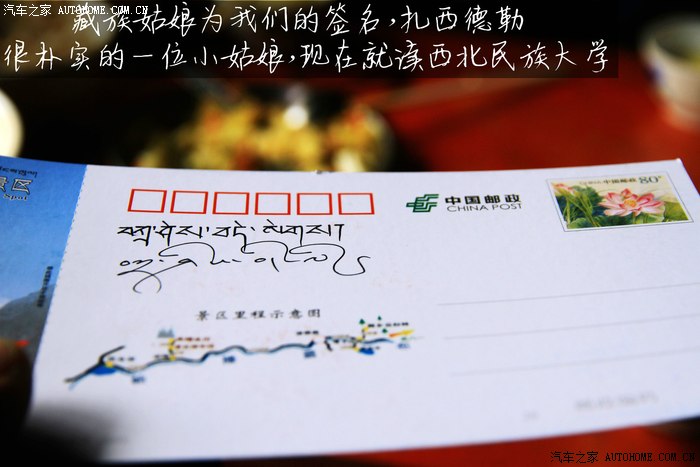 汽车之家 AUTOHOME.COM.CN
藏族姑娘为我们的签名,扎西德勒
很朴实的一位小姑娘,现在就读西北民族大学
景区
中国邮政
CHINA POST
中国邮政 80分
བཀྲ་ཤིས་བདེ་ལེགས།
景区里程示意图
汽车之家 AUTOHOME.COM.CN